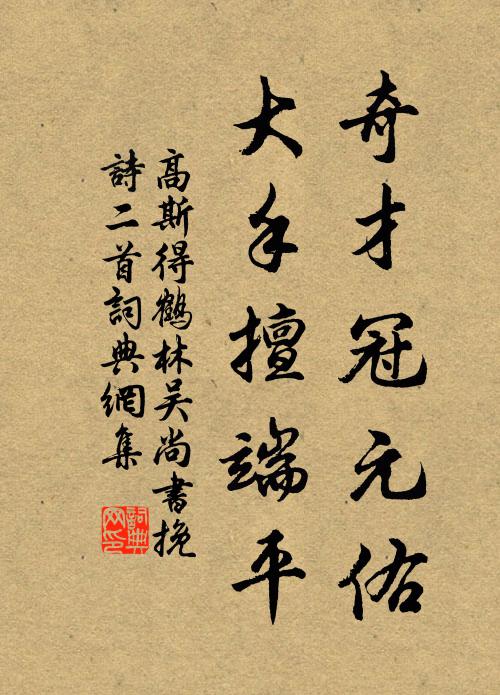 奇才冠元佑
大手擅端平
高斯得鶴林吴尚書挽
詩二首詞典網集
詞典網印